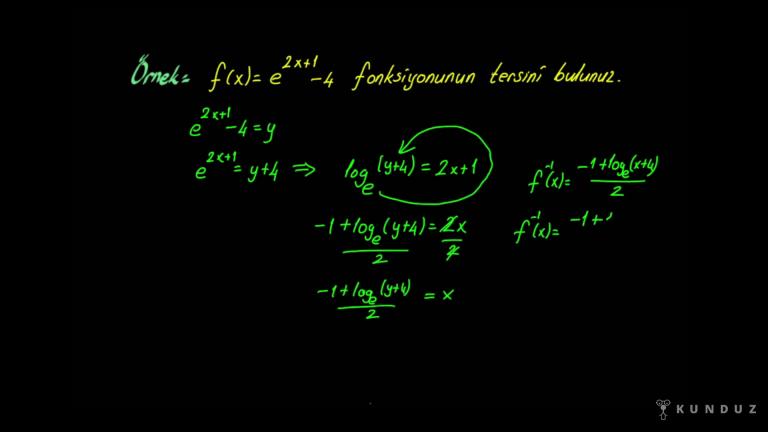 Örnek= f(x)= e^{2x+1}-4 fonksiyonunun tersini bulunuz.
e^{2x+1}-4=y
e^{2x+1}=y+4 ⇒ log_e(y+4)=2x+1
-1+log_e(y+4)/2=2x/2
-1+log_e(y+4)/2 = x
f^{-1}(x)= -1+log_e(x+4)/2
f^{-1}(x)= -1+
KUNDUZ